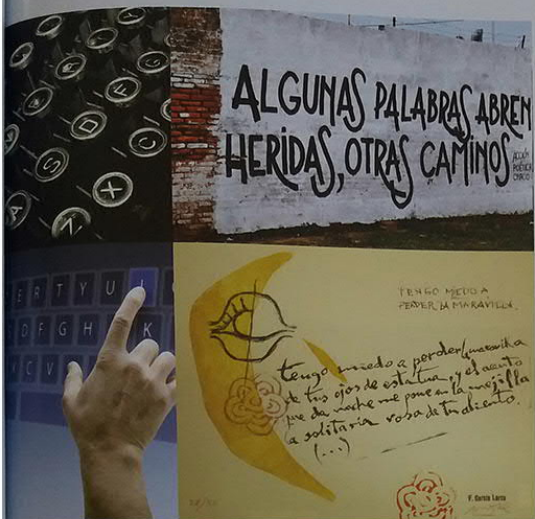 ALGUNAS PALABRAS ABREN
HERIDAS, OTRAS CAMINOS
ACCIÓN
POÉTICA
CHACO
S D C
A Z X
E R T Y U I
D F G H K
C V
TENGO MIEDO A
PERDER LA MARAVILLA.
tengo miedo a perder la maravilla
de tus ojos de estatua, y el acento
que de noche me pone en la mejilla
la solitaria rosa de tu aliento.
(...)
F. García Lorca